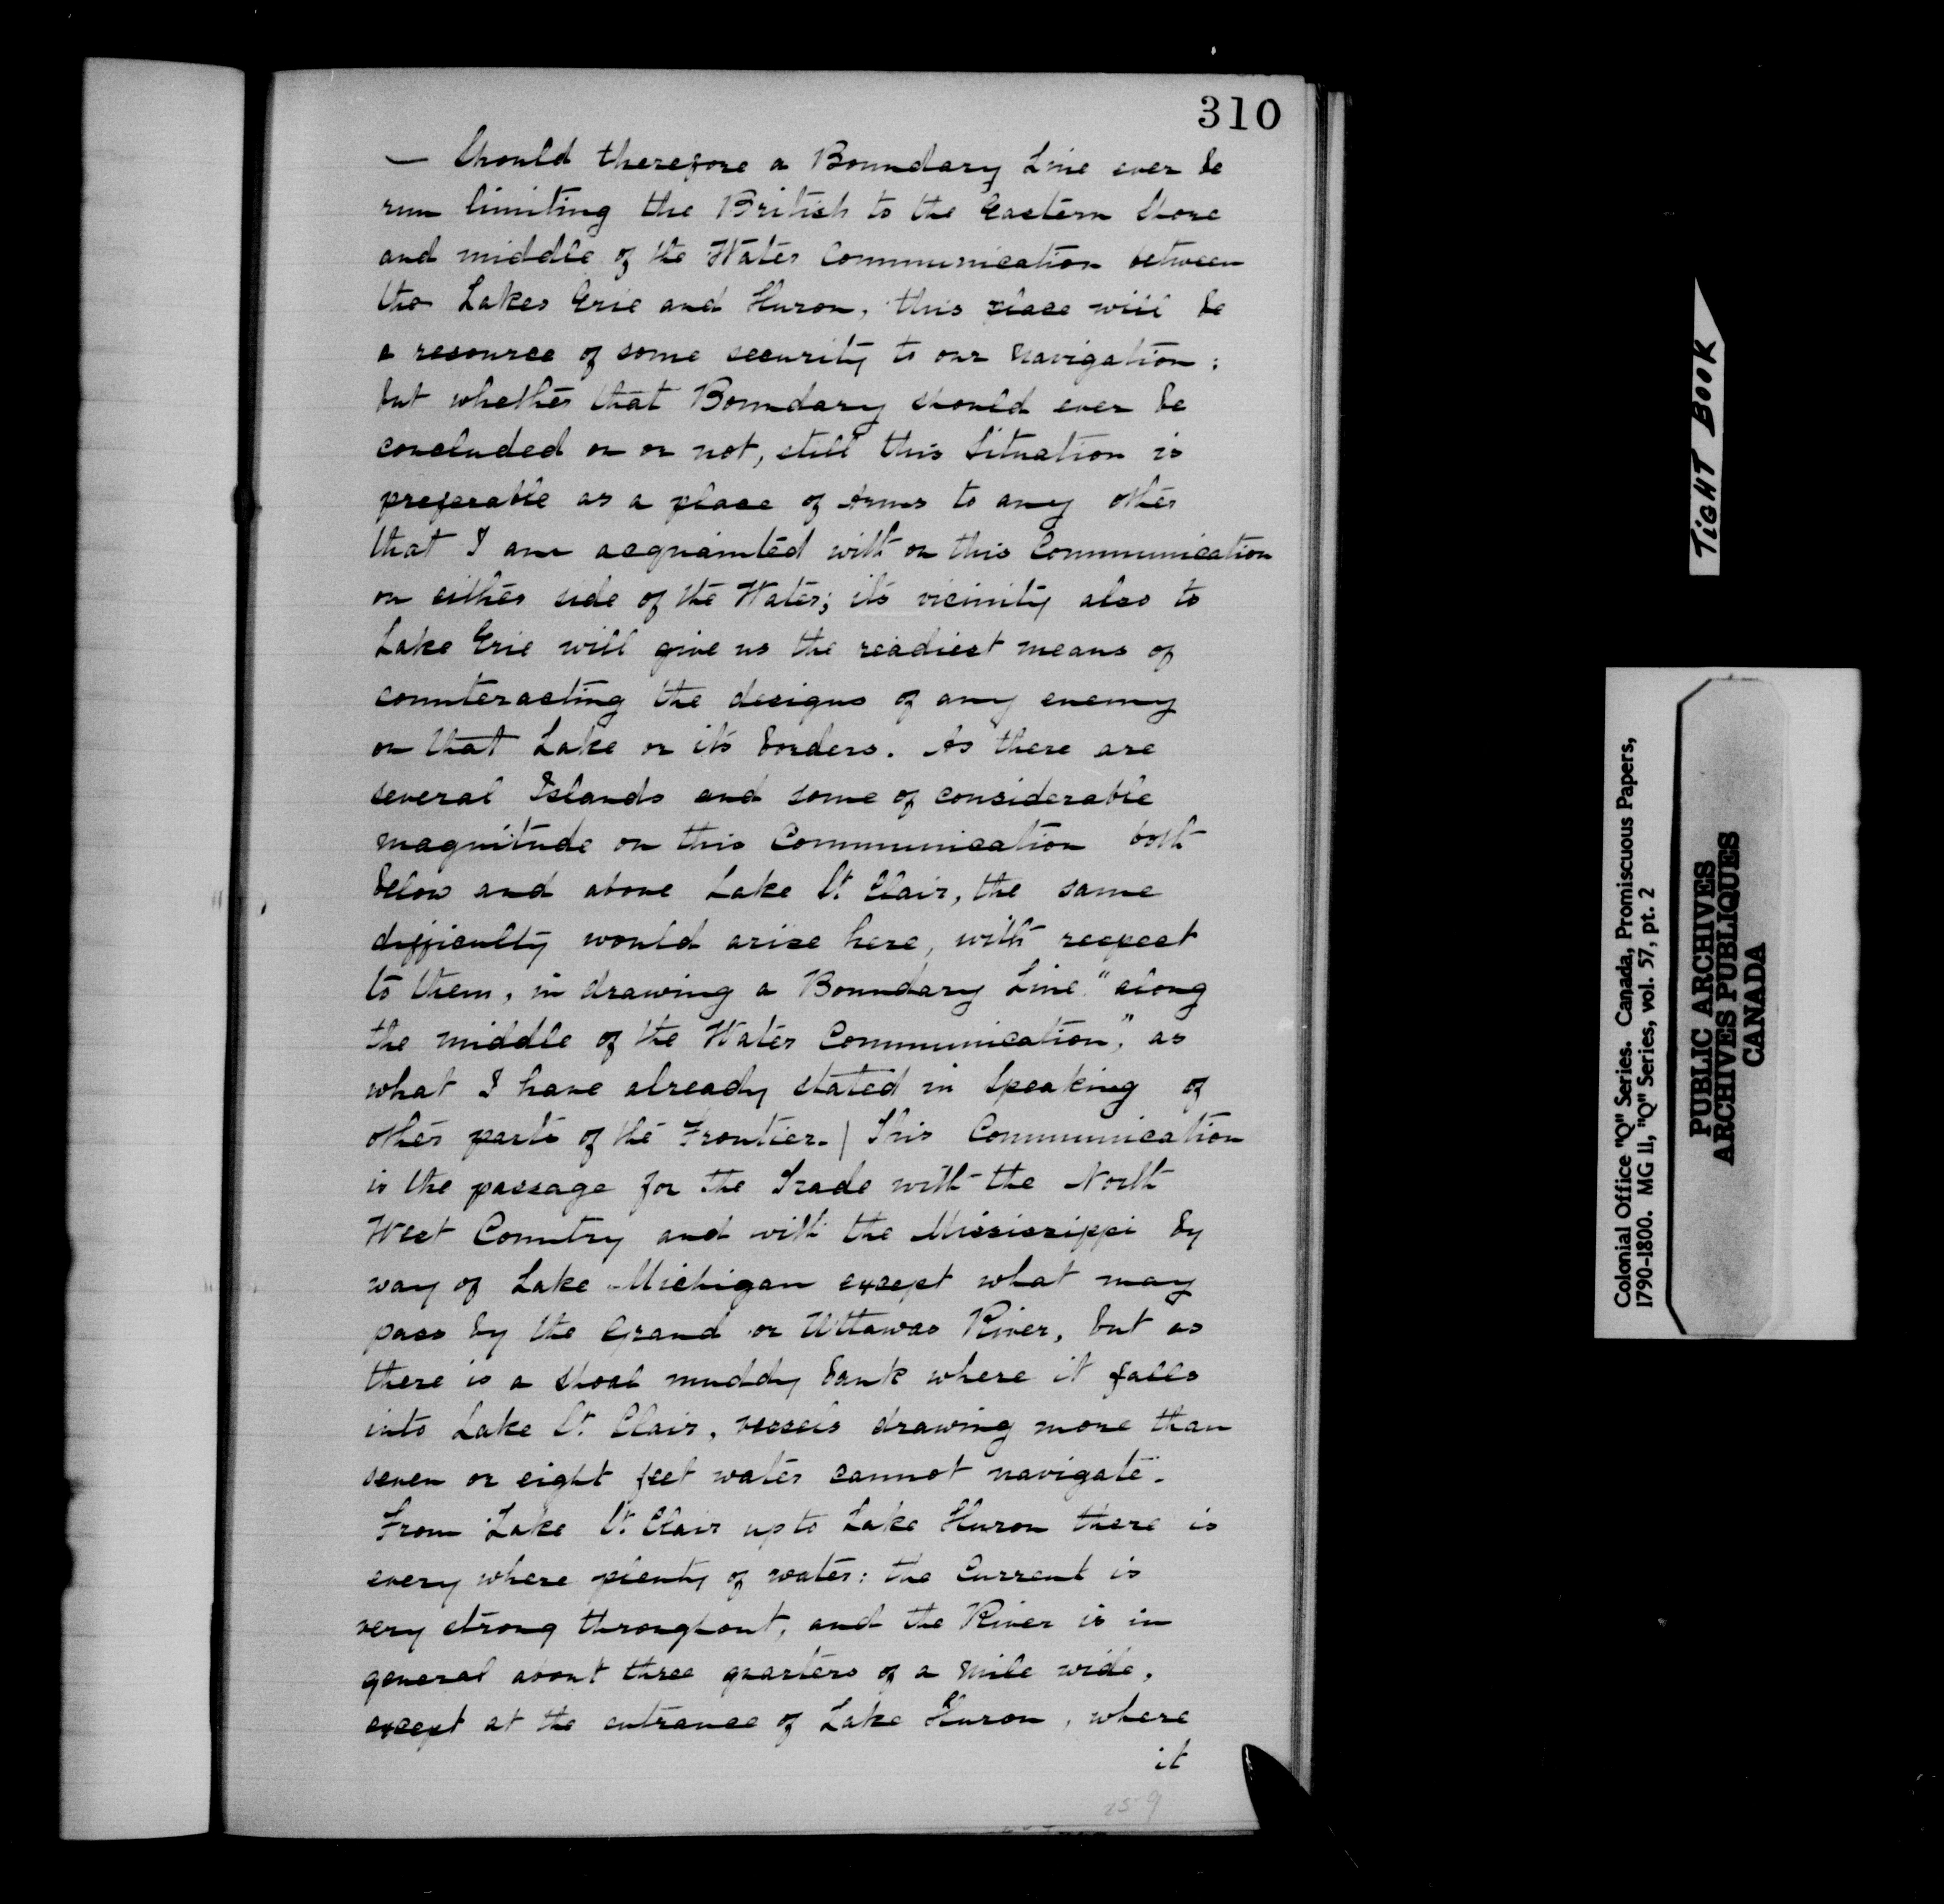 310
— Should therefore a Boundary Line ever be
run limiting the British to the Eastern Shore
and middle of the Water Communication between
the Lakes Erie and Huron, this place will be
a resource of some security to our Navigation:
but whether that Boundary should ever be
concluded on or not, still this Situation is
preferable as a place of Arms to any other
that I am acquainted with on this Communication
on either side of the Water; its vicinity also to
Lake Erie will give us the readiest means of
counteracting the designs of any enemy
on that Lake or its borders. As there are
several Islands and some of considerable
magnitude on this Communication both
below and above Lake St. Clair, the same
difficulty would arise here, with respect
to them, in drawing a Boundary Line "along
the middle of the Water Communication," as
what I have already stated in Speaking of
other parts of the Frontier. | This Communication
is the passage for the Trade with the North
West Country and with the Mississippi by
way of Lake Michigan except what may
pass by the Grand or Uttawas River, but as
there is a Shoal muddy bank where it falls
into Lake St. Clair, vessels drawing more than
seven or eight feet water cannot navigate.
From Lake St. Clair up to Lake Huron there is
every where plenty of water: the Current is
very strong throughout, and the River is in
general about three quarters of a Mile wide,
except at the entrance of Lake Huron, where
it
259
TIGHT BOOK
Colonial Office "Q" Series. Canada, Promiscuous Papers,
1790-1800. MG 11, "Q" Series, vol. 57, pt. 2
PUBLIC ARCHIVES
ARCHIVES PUBLIQUES
CANADA